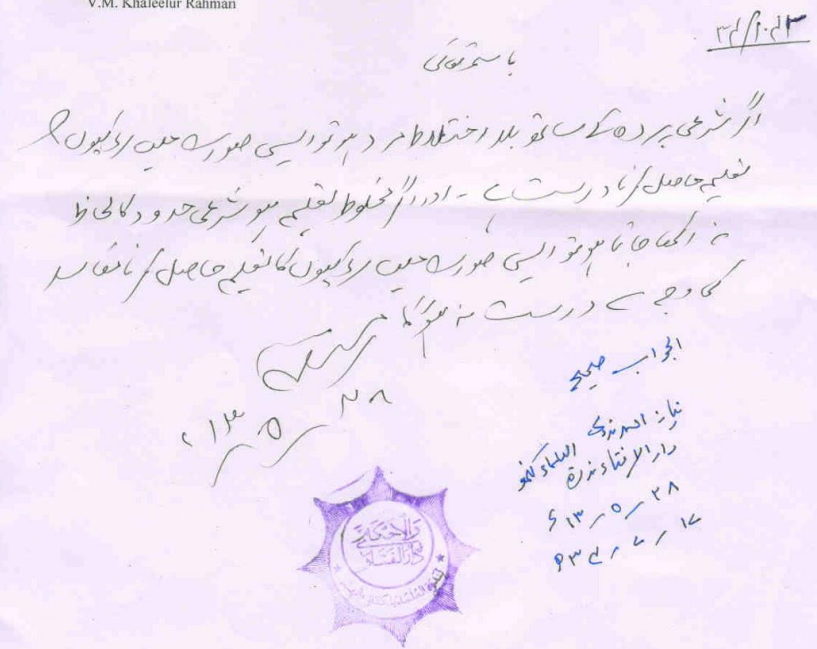 V.M. Khaleelur Rahman
باسمہ تعالیٰ
اگر شرعی پردہ کے ساتھ بلا اختلاط مرد ہو تو ایسی صورت میں لڑکیوں کا
تعلیم حاصل کرنا درست ہے۔ اور اگر مخلوط تعلیم ہو شرعی حدود کا لحاظ
نہ رکھا جاتا ہو تو ایسی صورت میں لڑکیوں کا تعلیم حاصل کرنا مفاسد
کی وجہ سے درست نہ ہوگا
۲۸ ؍ ۵ ؍ ۱۳ء
الجواب صحیح
نیاز احمد ندوی
دار الافتاء ندوۃ العلماء لکھنؤ
۲۸ ؍ ۵ ؍ ۱۳ء
دار الافتاء